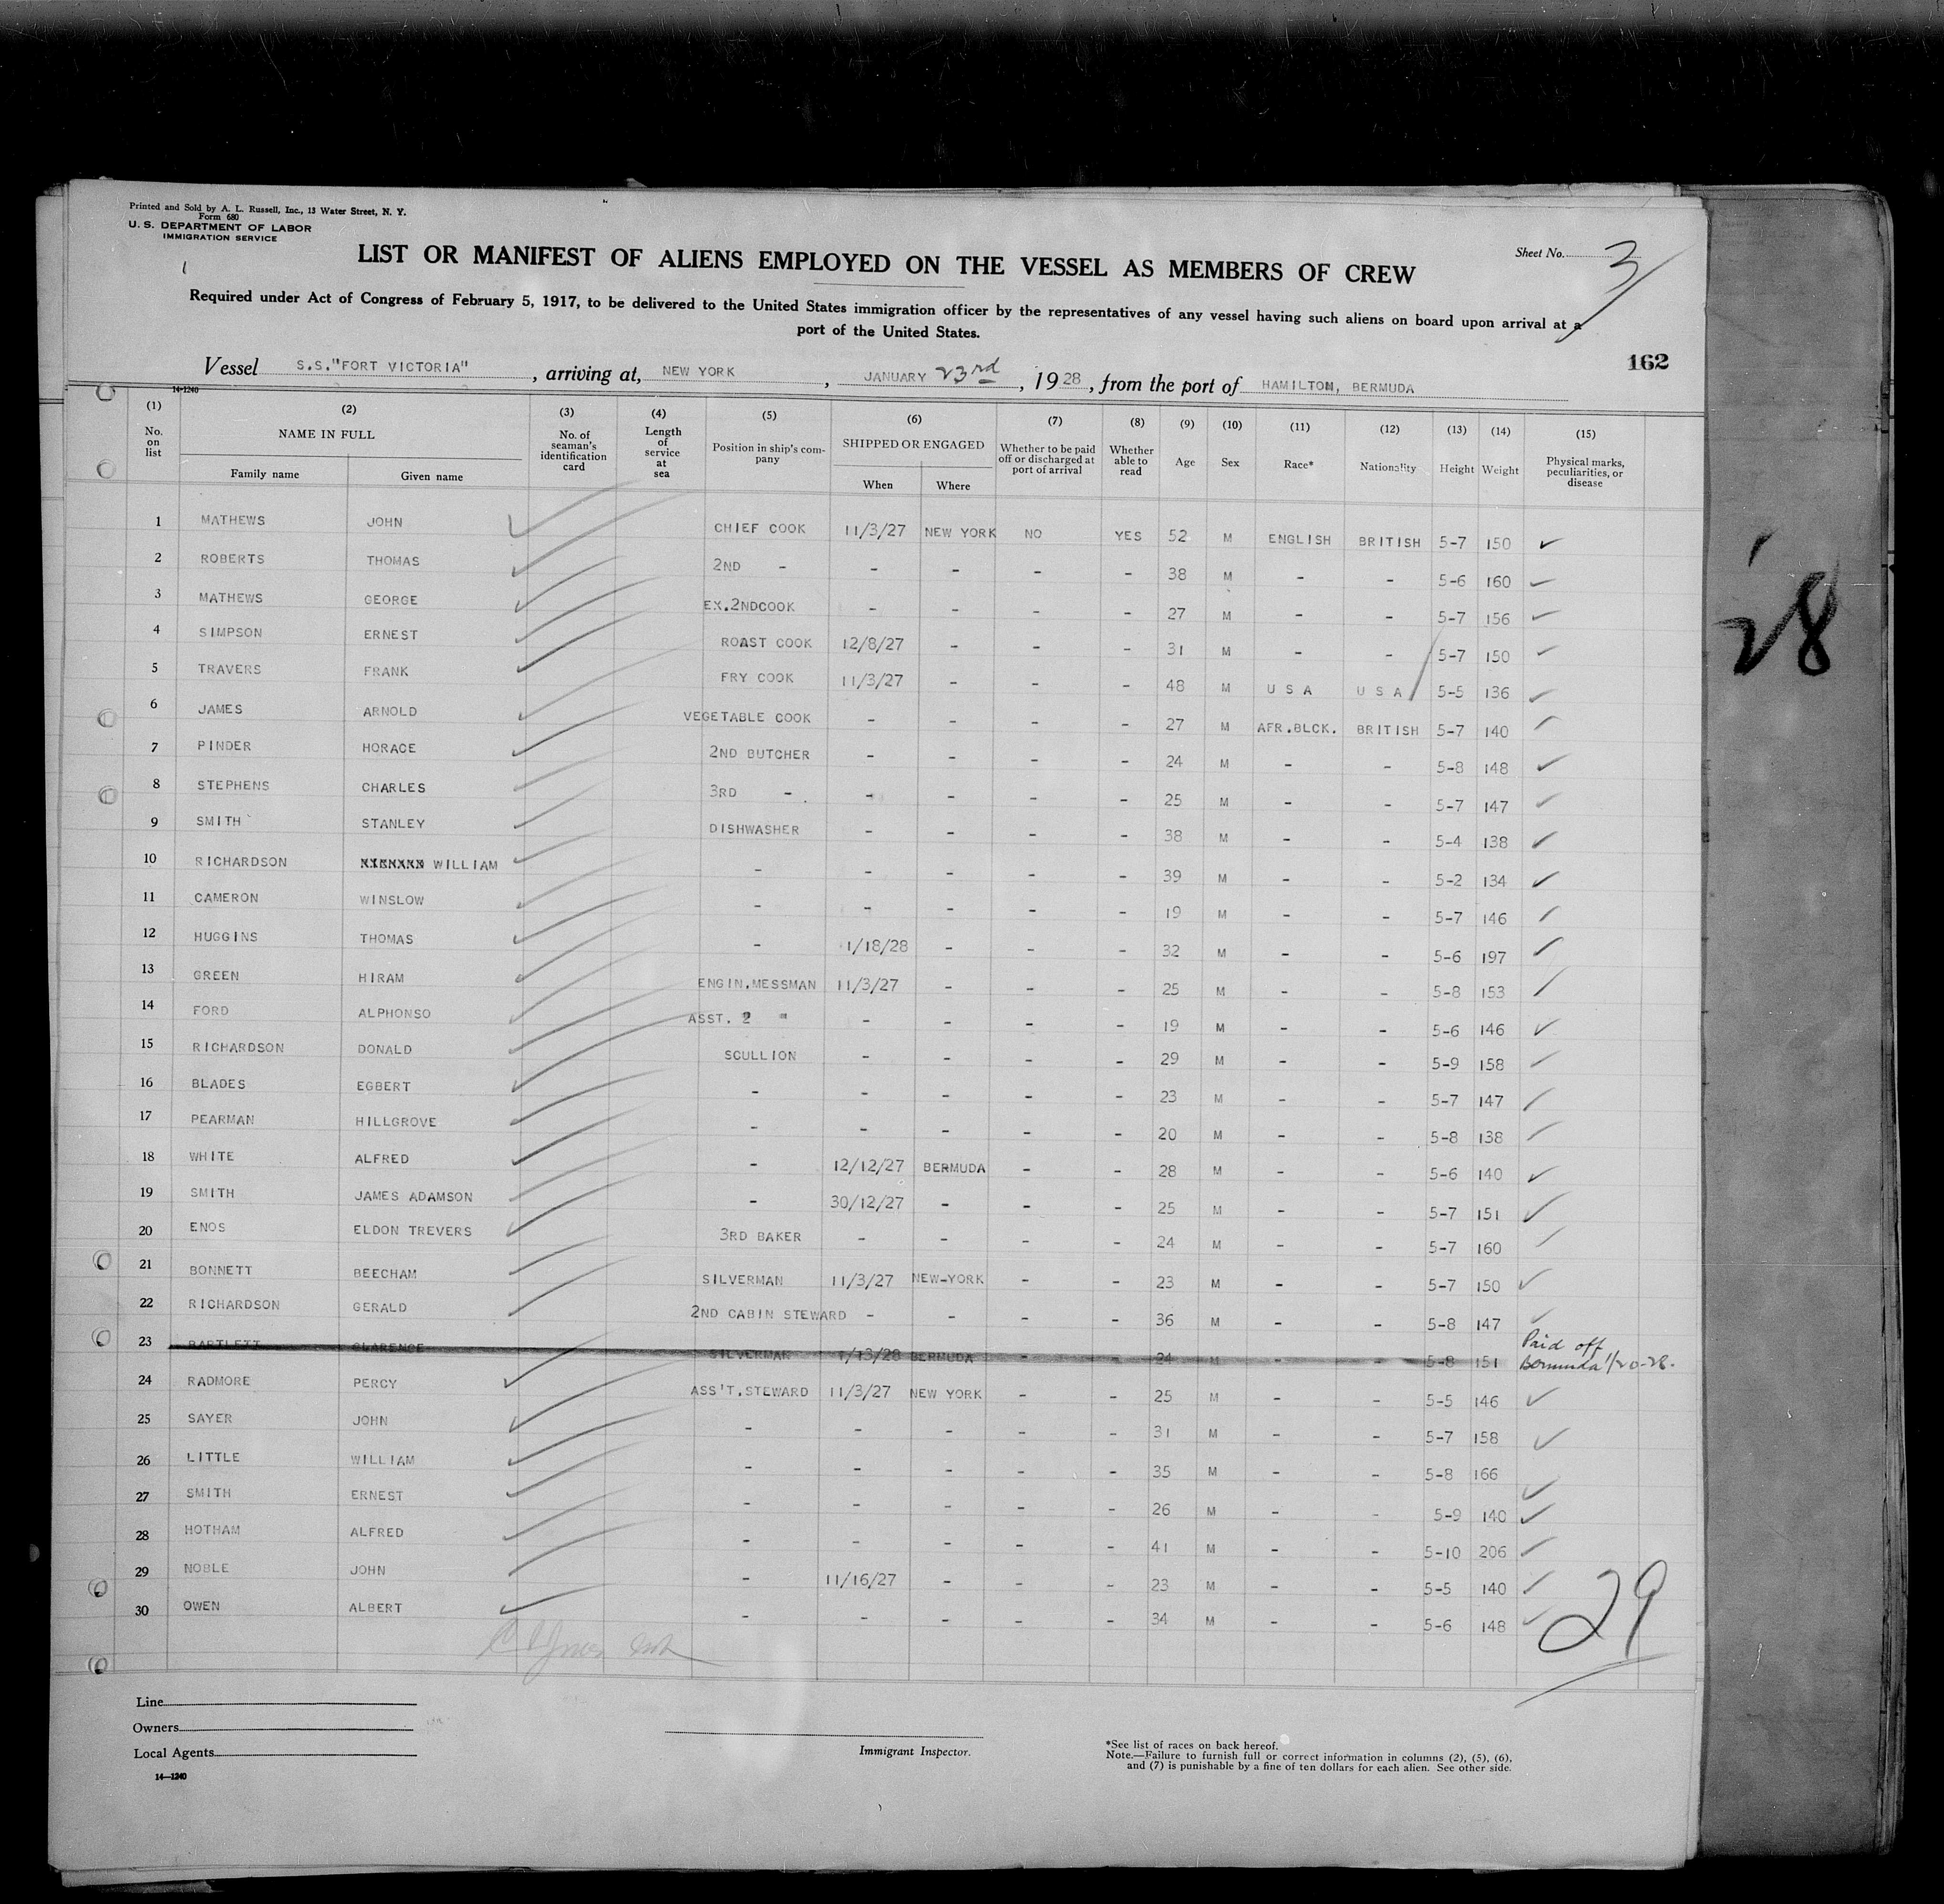 Printed and Sold by A. L. Russell, Inc., 13 Water Street, N. Y.
Form 680
U. S. DEPARTMENT OF LABOR
IMMIGRATION SERVICE
LIST OR MANIFEST OF ALIENS EMPLOYED ON THE VESSEL AS MEMBERS OF CREW
Sheet No. 3
Required under Act of Congress of February 5, 1917, to be delivered to the United States immigration officer by the representatives of any vessel having such aliens on board upon arrival at a
port of the United States.
162
Vessel S.S."FORT VICTORIA" , arriving at, NEW YORK , JANUARY 23rd , 1928 , from the port of HAMILTON, BERMUDA
14-1240
(1) No. on list (2) NAME IN FULL Family name Given name (3) No. of seaman's identification card (4) Length of service at sea (5) Position in ship's company (6) SHIPPED OR ENGAGED When Where (7) Whether to be paid off or discharged at port of arrival (8) Whether able to read (9) Age (10) Sex (11) Race* (12) Nationality (13) Height (14) Weight (15) Physical marks, peculiarities, or disease
1 MATHEWS JOHN CHIEF COOK 11/3/27 NEW YORK NO YES 52 M ENGLISH BRITISH 5-7 150
2 ROBERTS THOMAS 2ND - - - - - 38 M - - 5-6 160
3 MATHEWS GEORGE EX.2NDCOOK - - - - 27 M - - 5-7 156
4 SIMPSON ERNEST ROAST COOK 12/8/27 - - - 31 M - - 5-7 150
5 TRAVERS FRANK FRY COOK 11/3/27 - - - 48 M U S A U S A 5-5 136
6 JAMES ARNOLD VEGETABLE COOK - - - - 27 M AFR.BLCK. BRITISH 5-7 140
7 PINDER HORACE 2ND BUTCHER - - - - 24 M - - 5-8 148
8 STEPHENS CHARLES 3RD - - - - - 25 M - - 5-7 147
9 SMITH STANLEY DISHWASHER - - - - 38 M - - 5-4 138
10 RICHARDSON WILLIAM - - - - - 39 M - - 5-2 134
11 CAMERON WINSLOW - - - - - 19 M - - 5-7 146
12 HUGGINS THOMAS - 1/18/28 - - - 32 M - - 5-6 197
13 GREEN HIRAM ENGIN.MESSMAN 11/3/27 - - - 25 M - - 5-8 153
14 FORD ALPHONSO ASST. 2 " - - - - 19 M - - 5-6 146
15 RICHARDSON DONALD SCULLION - - - - 29 M - - 5-9 158
16 BLADES EGBERT - - - - - 23 M - - 5-7 147
17 PEARMAN HILLGROVE - - - - - 20 M - - 5-8 138
18 WHITE ALFRED - 12/12/27 BERMUDA - - 28 M - - 5-6 140
19 SMITH JAMES ADAMSON - 30/12/27 - - - 25 M - - 5-7 151
20 ENOS ELDON TREVERS 3RD BAKER - - - - 24 M - - 5-7 160
21 BONNETT BEECHAM SILVERMAN 11/3/27 NEW-YORK - - 23 M - - 5-7 150
22 RICHARDSON GERALD 2ND CABIN STEWARD - - - - 36 M - - 5-8 147
23 BARTLETT CLARENCE SILVERMAN 1/13/28 BERMUDA - - 24 M - - 5-8 151 Paid off Bermuda 1/20-28-
24 RADMORE PERCY ASS'T.STEWARD 11/3/27 NEW YORK - - 25 M - - 5-5 146
25 SAYER JOHN - - - - - 31 M - - 5-7 158
26 LITTLE WILLIAM - - - - - 35 M - - 5-8 166
27 SMITH ERNEST - - - - - 26 M - - 5-9 140
28 HOTHAM ALFRED - - - - - 41 M - - 5-10 206
29 NOBLE JOHN - 11/16/27 - - - 23 M - - 5-5 140
30 OWEN ALBERT - - - - - 34 M - - 5-6 148
29
28
Line
Owners
Local Agents
14—1240
Immigrant Inspector.
*See list of races on back hereof.
Note.—Failure to furnish full or correct information in columns (2), (5), (6),
and (7) is punishable by a fine of ten dollars for each alien. See other side.